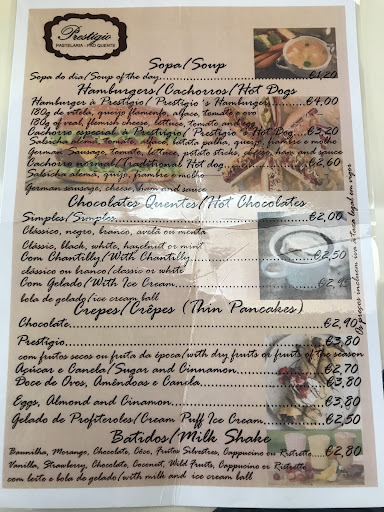 Prestígio
PASTELARIA - PÃO QUENTE
Sopa/Soup
Sopa do dia/Soup of the day....................€1,20
Hamburgers/Cachorros/Hot Dogs
Hamburger à Prestígio/Prestígio´s Hamburger............€4,00
180g de vitela, queijo flamengo, alface, tomate e ovo
180g of veal, flemish cheese, lettuce, tomato, and egg
Cachorro especial à Prestígio/ Prestígio´s Hot Dog......€3,20
Salsicha alemã, tomate, alface, batata palha, queijo, fiambre e molho
German Sausage, tomato, lettuce, potato sticks, cheese, ham and sauce
Cachorro normal/Traditional Hot dog..................€2,60
Salsicha alemã, queijo, fiambre e molho
German sausage, cheese, ham and sauce
Chocolates Quentes/Hot Chocolates
Simples/Simples..............................€2,00
Clássico, negro, branco, avelã ou menta
Classic, black, white, hazelnut or mint
Com Chantilly/With Chantilly....................€2,50
clássico ou branco/classic or white
Com Gelado/With Ice Cream....................€2,95
bola de gelado/ice cream ball
Crepes/Crêpes (Thin Pancakes)
Chocolate..............................€2,90
Prestígio..............................€3,80
com frutos secos ou fruta da época/with dry fruits or fruits of the season
Açúcar e Canela/Sugar and Cinnamon..............€2,70
Doce de Ovos, Amêndoas e Canela..................€3,80
Eggs, Almond and Cinamon....................€3,80
Gelado de Profiteroles/Cream Puff Ice Cream..........€2,50
Batidos/Milk Shake
Baunilha, Morango, Chocolate, Côco, Frutos Silvestres, Cappucino ou Ristretto.....€2,80
Vanilla, Strawberry, Chocolate, Coconut, Wild Fruits, Cappucino or Ristretto
com leite e bola de gelado/with milk and ice cream ball
Os preços incluem iva à taxa legal em vigor